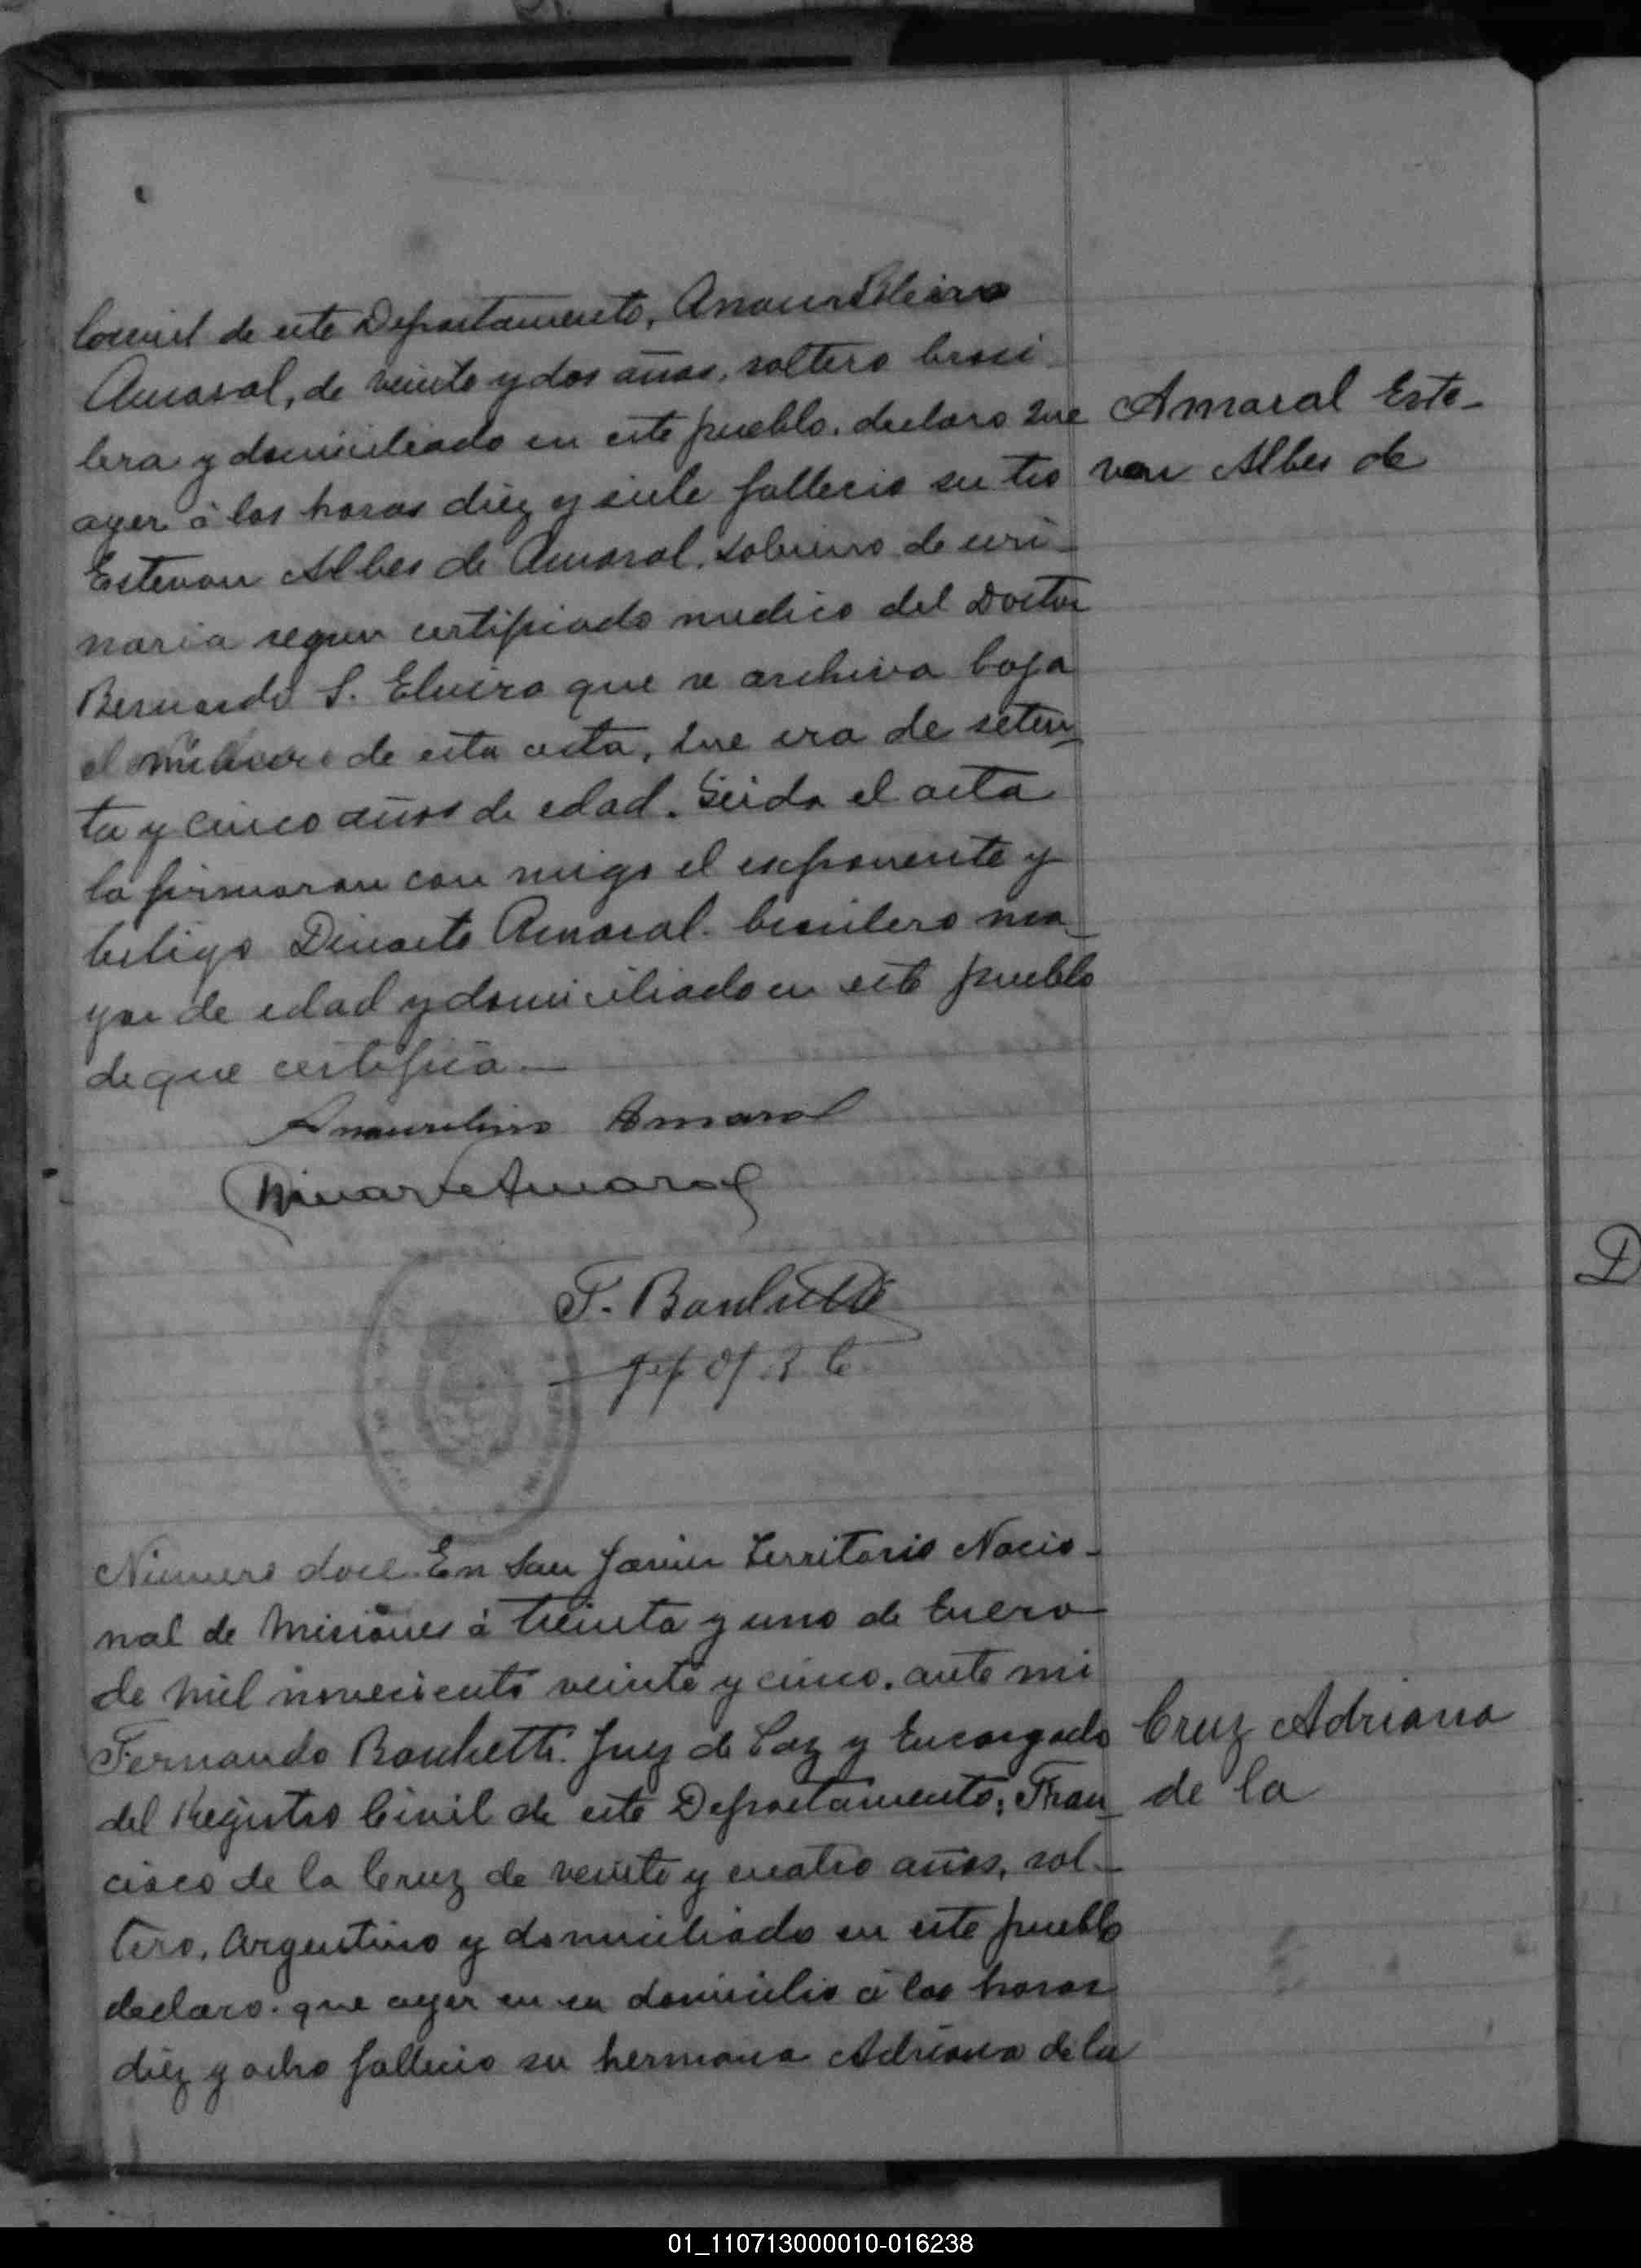 Civil de este Departamento, Anaurelino
Amaral, de veinte y dos años, soltero brasi-
lero y domiciliado en este pueblo, declaro que
ayer á las horas diez y siete fallecio su tio
Estevan Albes de Amaral, de
segun certificado medico del Doctor
Bernardo S. Elvira que se archiva bajo
el número de esta acta, que era de seten-
ta y cinco años de edad. Leida el acta
la firmaron con migo el exponente y
testigo Dinarte Amaral. brasilero ma-
yor de edad y domiciliado en este pueblo
de que certifico.—
Anaurelino Amaral
Dinarte Amaral
F. Banchetti
Amaral Este-
van Albes de
Número doce. En San Javier Territorio Nacio-
nal de Misiones á treinta y uno de Enero
de mil noveciento veinte y cinco, ante mi
Fernando Banchetti. Juez de Paz y Encargado
del Registro Civil de este Departamento; Fran-
cisco de la Cruz de veinte y cuatro años, sol-
tero, Argentino y domiciliado en este pueblo
declaro. que ayer en su domicilio á las horas
diez y ocho fallecio su hermana Adriana de la
Cruz Adriana
de la
D
01_110713000010-016238